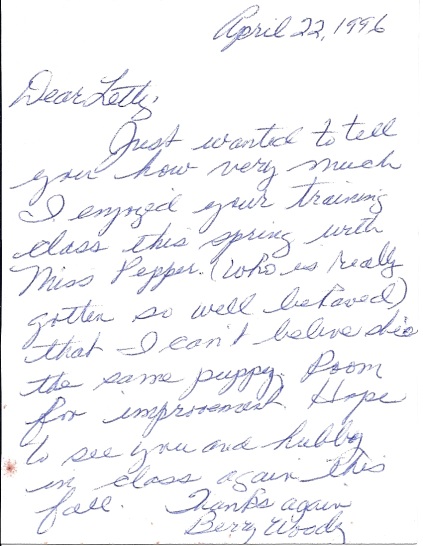 April 22, 1996
Dear Letty,
Just wanted to tell
you how very much
I enjoyed your training
class this spring with
Miss Pepper. (Who is really
gotten so well behaved)
that I can't belive she
the same puppy. Room
for improvement. Hope
to see you and hubby
in class again this
fall. Thanks again
Woody